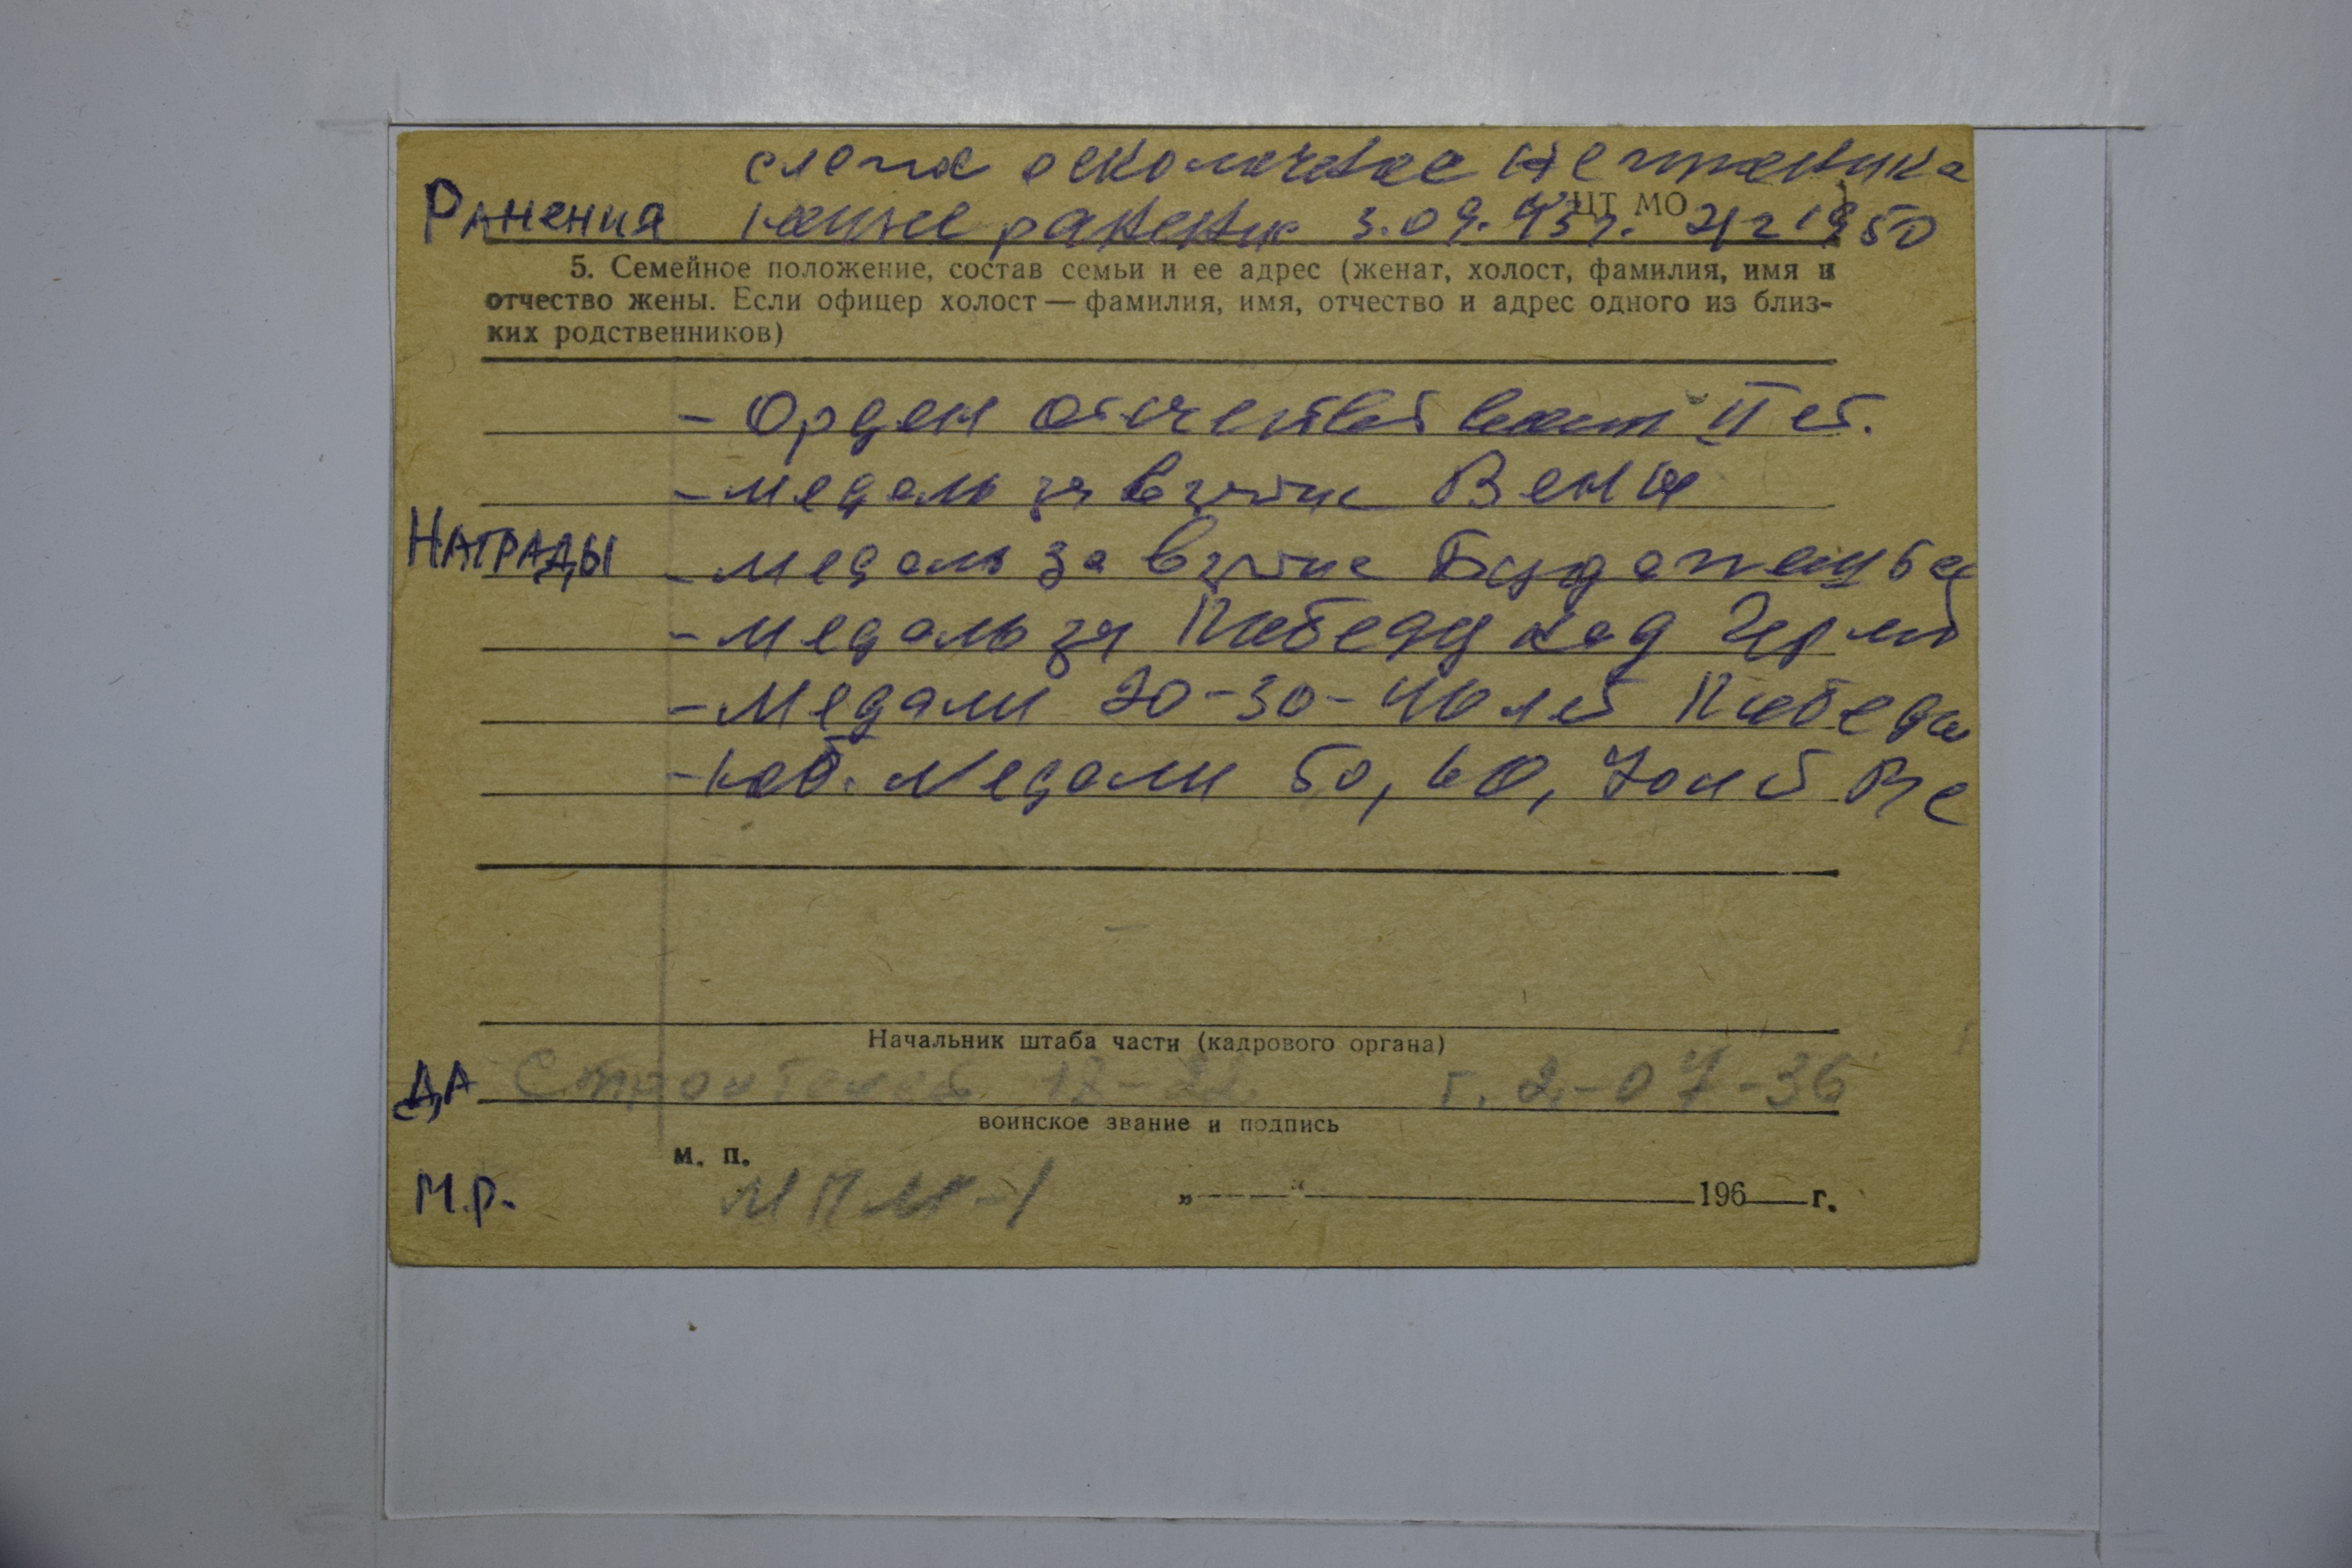 слепое осколочное
Ранения ранение 3.09.43г.
ЦТ МО
5. Семейное положение, состав семьи и ее адрес (женат, холост, фамилия, имя и
отчество жены. Если офицер холост — фамилия, имя, отчество и адрес одного из близ-
ких родственников)
- Орден II ст.
- медаль за взятие Вены
Награды - медаль за взятие Будапешта
- медаль за Победу над Герм
- Медали 20-30-40 лет Победы
- юб. медали 50, 60, 70 лет
Начальник штаба части (кадрового органа)
ДА Строителей 18-22 т. 2-07-36
воинское звание и подпись
м. п.
М.Р. МПМК-1 „ “ 196 г.